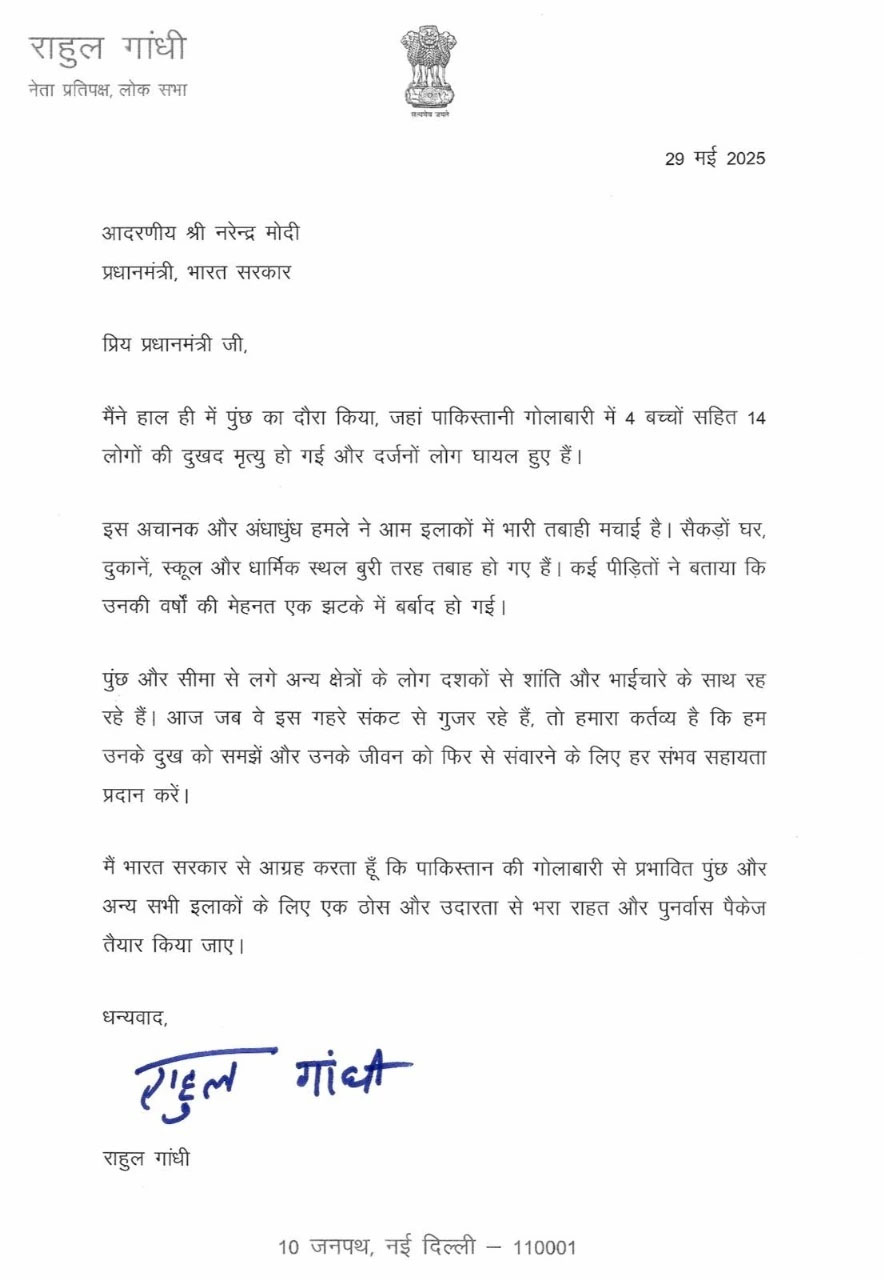 राहुल गांधी
नेता प्रतिपक्ष, लोक सभा
सत्यमेव जयते
29 मई 2025
आदरणीय श्री नरेन्द्र मोदी
प्रधानमंत्री, भारत सरकार
प्रिय प्रधानमंत्री जी,
मैंने हाल ही में पुंछ का दौरा किया, जहां पाकिस्तानी गोलाबारी में 4 बच्चों सहित 14
लोगों की दुखद मृत्यु हो गई और दर्जनों लोग घायल हुए हैं।
इस अचानक और अंधाधुंध हमले ने आम इलाकों में भारी तबाही मचाई है। सैकड़ों घर,
दुकानें, स्कूल और धार्मिक स्थल बुरी तरह तबाह हो गए हैं। कई पीड़ितों ने बताया कि
उनकी वर्षों की मेहनत एक झटके में बर्बाद हो गई।
पुंछ और सीमा से लगे अन्य क्षेत्रों के लोग दशकों से शांति और भाईचारे के साथ रह
रहे हैं। आज जब वे इस गहरे संकट से गुजर रहे हैं, तो हमारा कर्तव्य है कि हम
उनके दुख को समझें और उनके जीवन को फिर से संवारने के लिए हर संभव सहायता
प्रदान करें।
मैं भारत सरकार से आग्रह करता हूँ कि पाकिस्तान की गोलाबारी से प्रभावित पुंछ और
अन्य सभी इलाकों के लिए एक ठोस और उदारता से भरा राहत और पुनर्वास पैकेज
तैयार किया जाए।
धन्यवाद,
राहुल गांधी
राहुल गांधी
10 जनपथ, नई दिल्ली – 110001